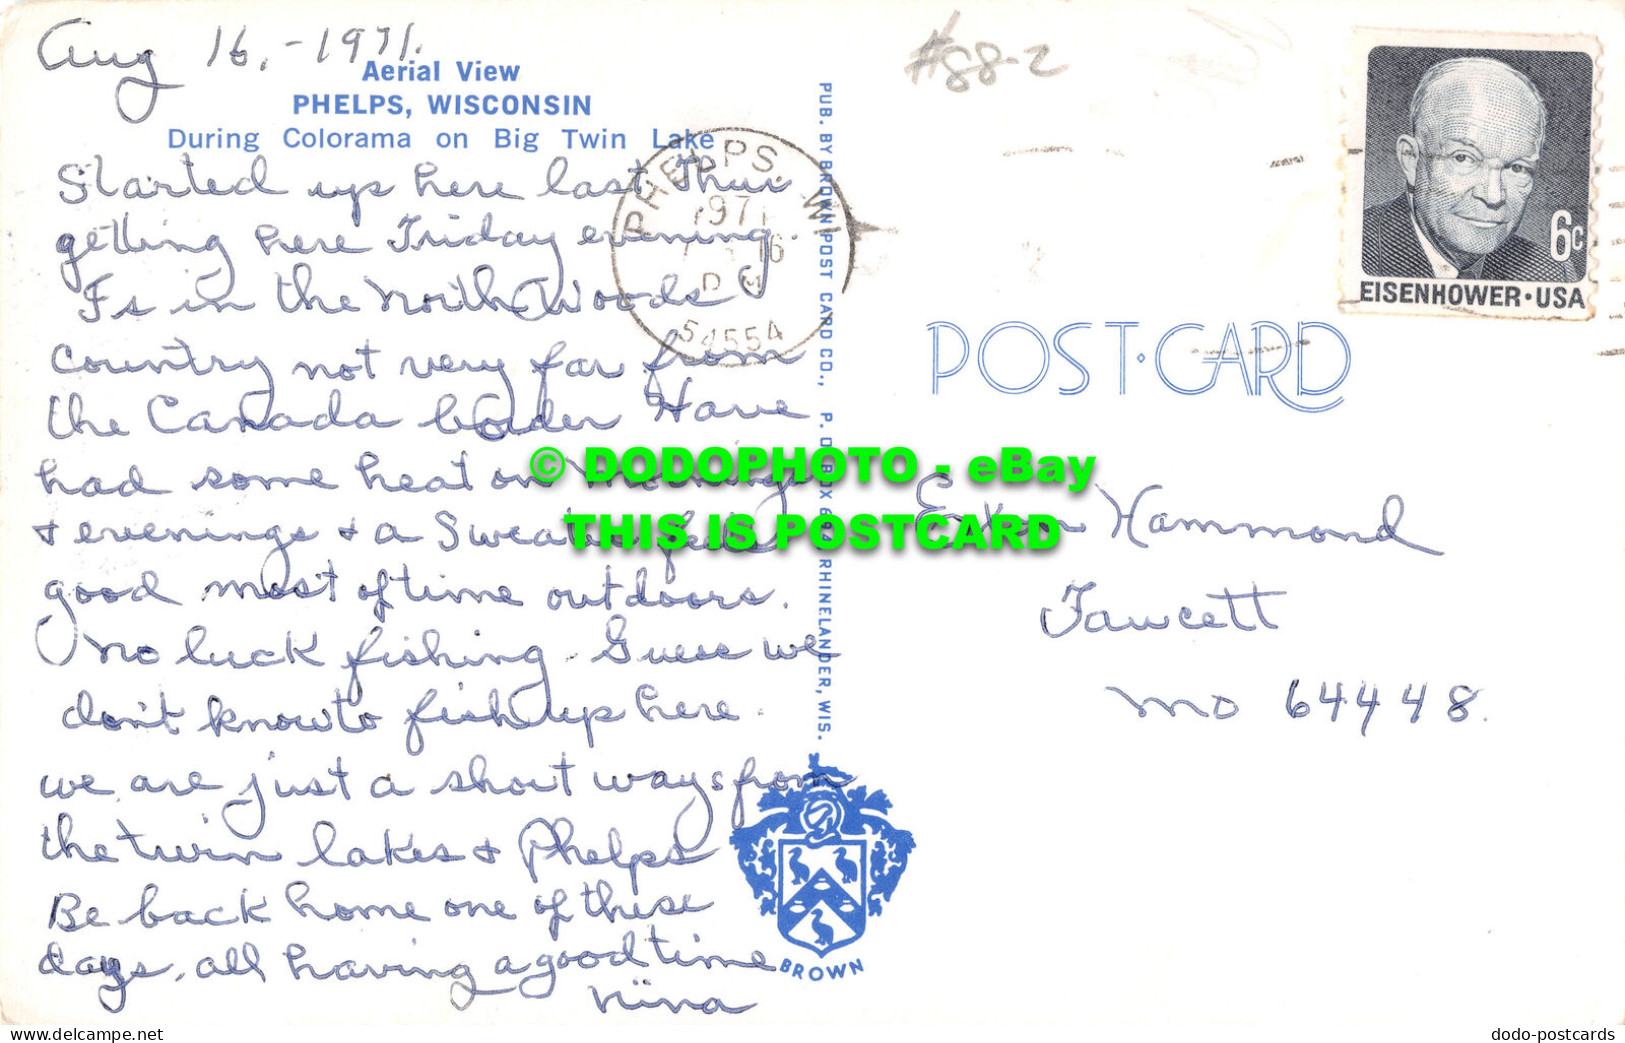 Aug 16, - 1971.
Aerial View
PHELPS, WISCONSIN
During Colorama on Big Twin Lake
Started up here last Thur
getting here Friday evening.
Is in the North Woods
Country not very far from
the Canada border Have
had some heat on mornings
& evenings & a Sweater feels
good most of time outdoors.
No luck fishing. Guess we
don't know to fish up here.
we are just a short ways from
the twin lakes & Phelps
Be back home one of these
days, all having a good time
Nina
#88-2
PHELPS, WI
1971
16
PM
54554
PUB. BY BROWN POST CARD CO., P. O. BOX RHINELANDER, WIS.
BROWN
6c
EISENHOWER·USA
POST·CARD
© DODOPHOTO - eBay
THIS IS POSTCARD
Hammond
Fawcett
Mo 64448.
www.delcampe.net/en_US/collectibles/
dodo-postcards